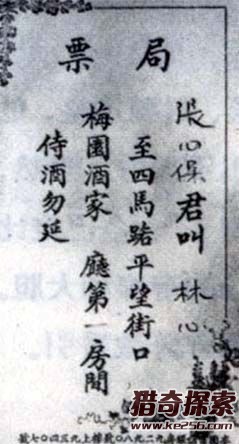 局票
張心君叫 林心
至四馬路平望街口
梅園酒家 廳第一房間
侍酒勿延
猎奇探索
www.ke256.com